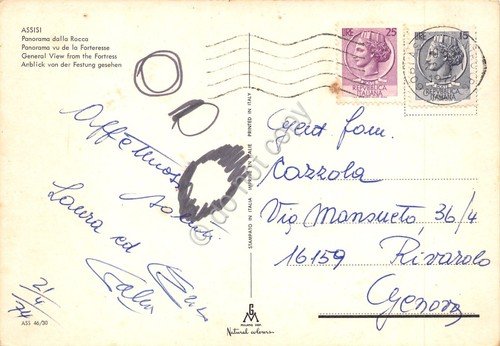 ASSISI
Panorama dalla Rocca
Panorama vu de la Forteresse
General View from the Fortress
Anblick von der Festung gesehen
Affettuosi
saluti
Laura ed
21/4/74
ASS 46/30
STAMPATO IN ITALIA IMPRIMÉ EN ITALIE PRINTED IN ITALY
MILANO
Natural colours
LIRE 25
REPUBBLICA
ITALIANA
LIRE 15
REPUBBLICA
ITALIANA
Gent. fam.
Cazzola
Via Mansueto, 36/4
16159 Rivarolo
Genova
do not copy